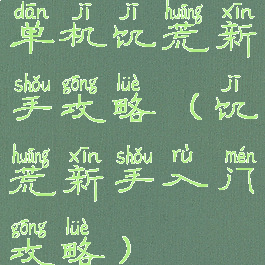 dān jī jī huāng xīn
单机饥荒新
shǒu gōng lüè jī
手攻略（饥
huāng xīn shǒu rù mén
荒新手入门
gōng lüè
攻略）